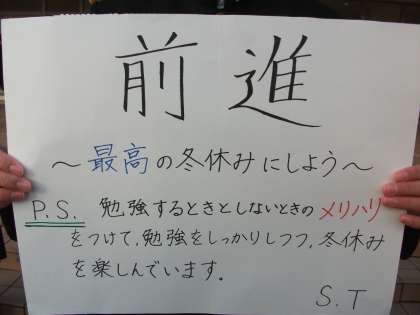 前進
～最高の冬休みにしよう～
P.S. 勉強するときとしないときのメリハリ
をつけて,勉強をしっかりしつつ,冬休み
を楽しんでいます。
S.T